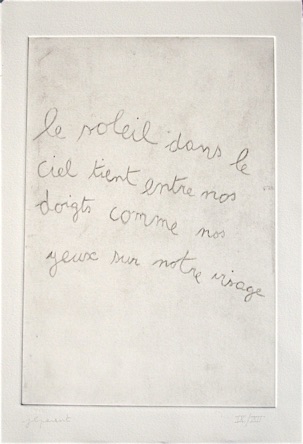 le soleil dans le
ciel tient entre nos
doigts comme nos
yeux sur notre visage